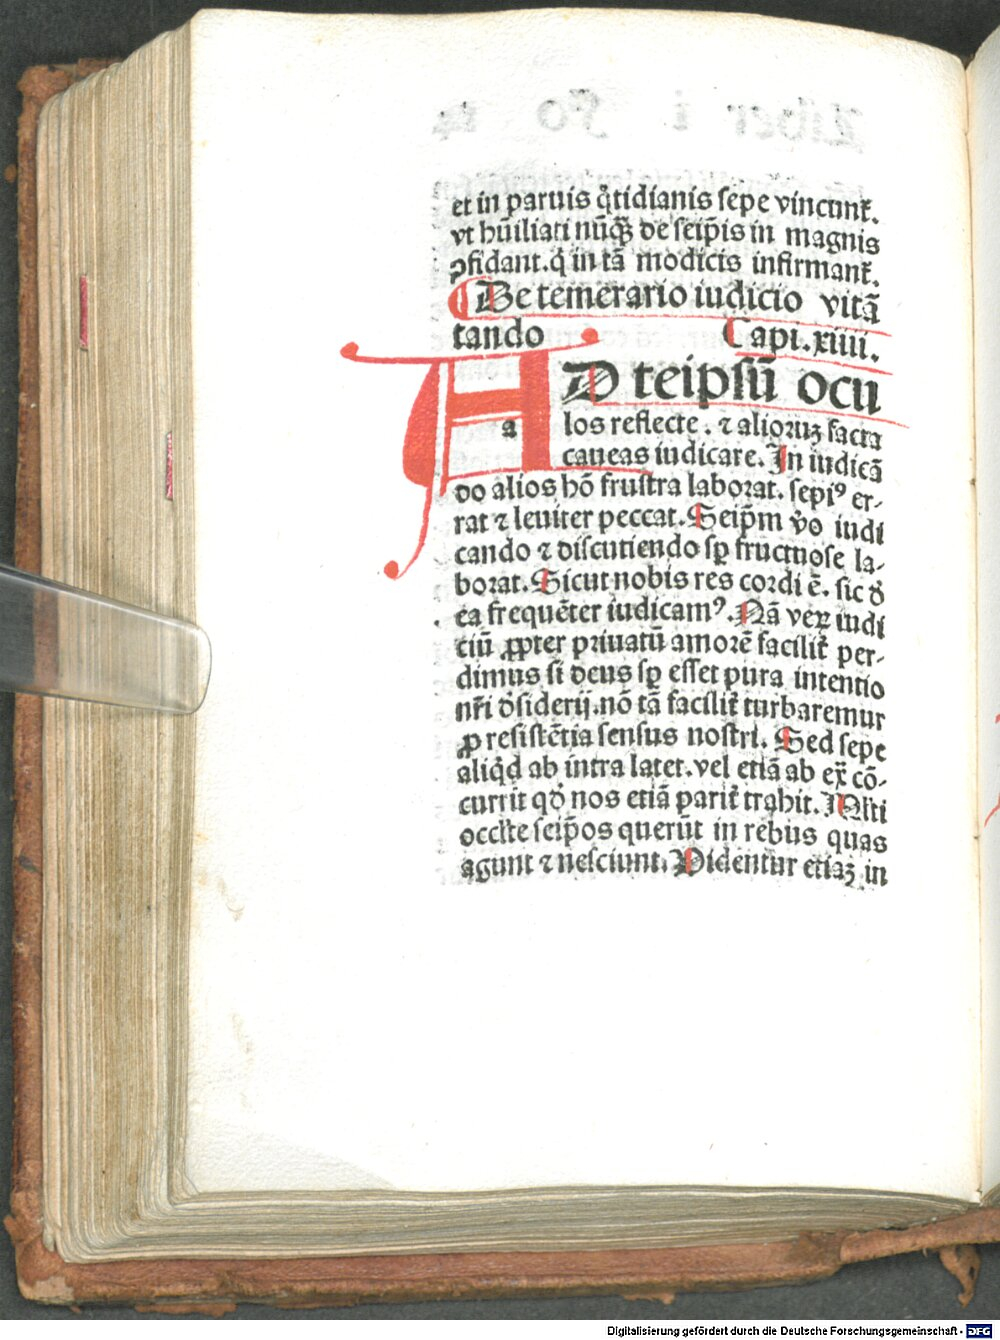 et in paruis q̃tidianis sepe vincunt̃.
vt hũiliati nũq̃ de seip̃is in magnis
ꝓfidant. q̃ in tã modicis infirmant̃.
De temerario iudicio vitã
tando Capi. xiiii.
AD teipsũ ocu
a los reflecte. ⁊ alioruꝫ facta
caueas iudicare. In iudicã
do alios hõ frustra laborat. sepiꝰ er-
rat ⁊ leuiter peccat. Seip̃m ṽo iudi
cando ⁊ discutiendo sꝑ fructuose la-
borat. Sicut nobis res cordi ẽ. sic d̕
ea frequẽter iudicamꝰ. Nã veꝝ iudi
ciũ ꝓpter priuatũ amorẽ facilit̃ per-
dimus si deus sꝑ esset pura intentio
nr̃i d̕siderij. nõ tã facilit̃ turbaremur
ꝓ resistẽtia sensus nostri. Sed sepe
aliq̃d ab intra latet. vel etiã ab ex̃ cõ-
currit qd̕ nos etiã parit̃ trahit. Mĩti
occl̃te seip̃os querũt in rebus quas
agunt ⁊ nesciunt. Uidentur etiaꝫ in
Digitalisierung gefördert durch die Deutsche Forschungsgemeinschaft - DFG